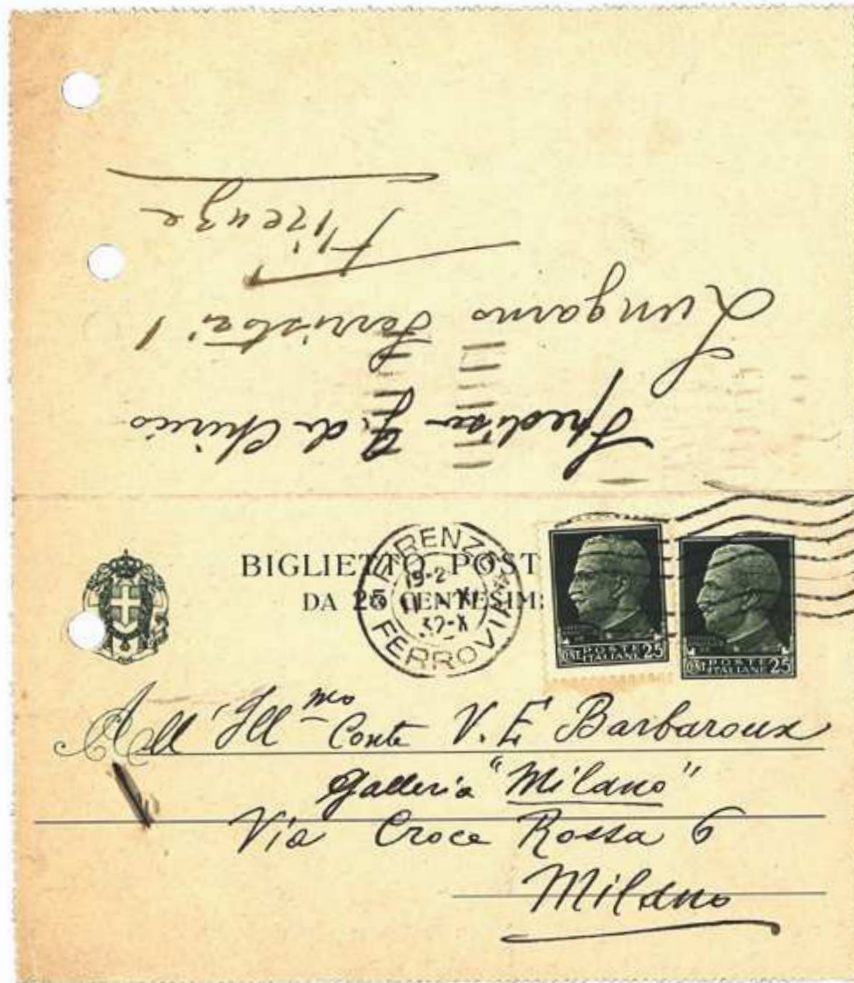 G. de Chirico
Lungarno Serristori 1
Firenze
BIGLIETTO POST
DA 25 CENTESIM
FIRENZE
19-2
32-X
FERROVIA
CENT POSTE ITALIANE 25
CENT POSTE ITALIANE 25
All' Ill.mo Conte V. E Barbaroux
Galleria "Milano"
Via Croce Rossa 6
Milano